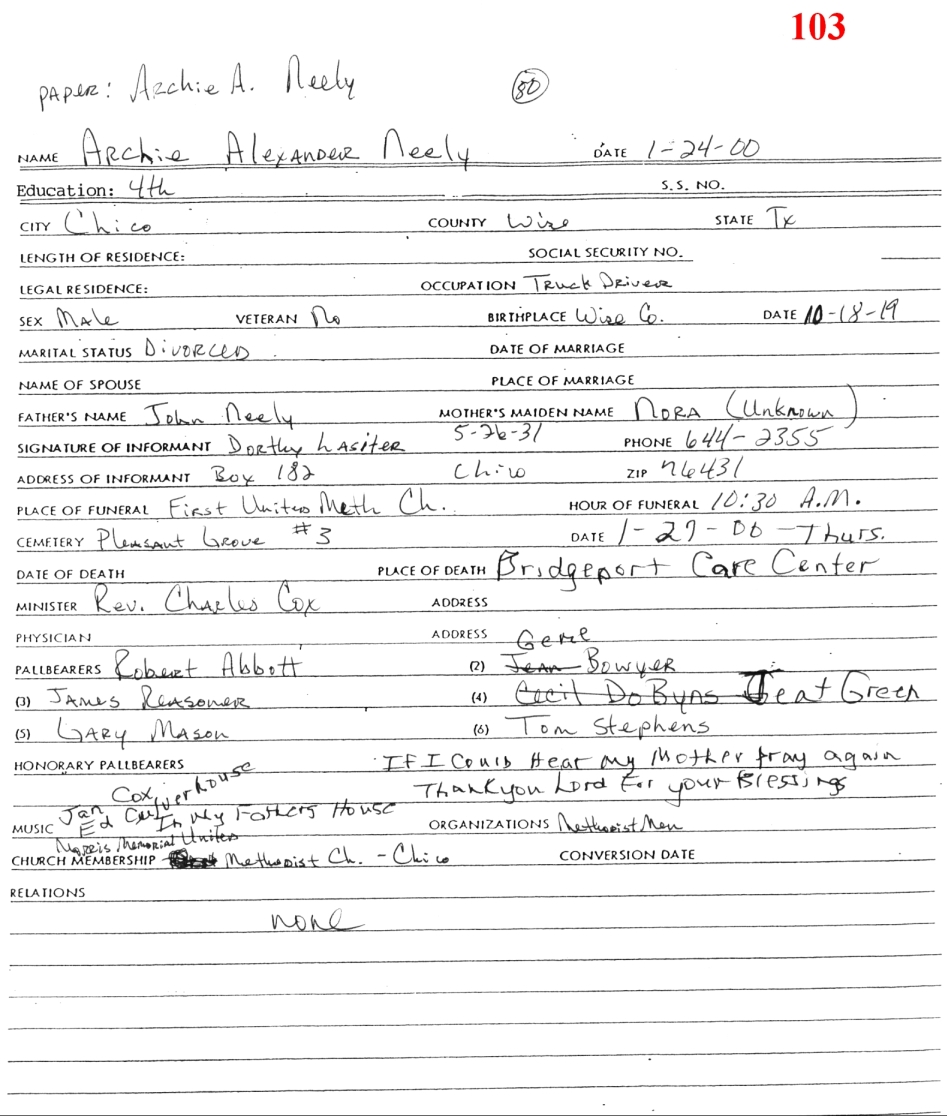 103
PAPER: Archie A. Neely 80
NAME Archie Alexander Neely DATE 1-24-00
Education: 4th S.S. NO.
CITY Chico COUNTY Wise STATE Tx
LENGTH OF RESIDENCE: SOCIAL SECURITY NO.
LEGAL RESIDENCE: OCCUPATION Truck Driver
SEX Male VETERAN No BIRTHPLACE Wise Co. DATE 10-18-19
MARITAL STATUS Divorced DATE OF MARRIAGE
NAME OF SPOUSE PLACE OF MARRIAGE
FATHER'S NAME John Neely MOTHER'S MAIDEN NAME Nora (Unknown)
SIGNATURE OF INFORMANT Dorthy Lasiter 5-26-31 PHONE 644-2355
ADDRESS OF INFORMANT Box 182 Chico ZIP 76431
PLACE OF FUNERAL First United Meth Ch. HOUR OF FUNERAL 10:30 A.M.
CEMETERY Pleasant Grove #3 DATE 1-27-00 - Thurs.
DATE OF DEATH PLACE OF DEATH Bridgeport Care Center
MINISTER Rev. Charles Cox ADDRESS
PHYSICIAN ADDRESS
Gene
PALLBEARERS Robert Abbott (2) Jean Bowyer
(3) James Reasoner (4) Cecil DoByns Jeat Green
(5) Gary Mason (6) Tom Stephens
HONORARY PALLBEARERS If I Could Hear my Mother Pray again
Jan Cox Thank you Lord For your Blessings
Ed Culverhouse
MUSIC In My Fathers House ORGANIZATIONS Methodist Men
Morris Memorial United
CHURCH MEMBERSHIP Methodist Ch. - Chico CONVERSION DATE
RELATIONS
none